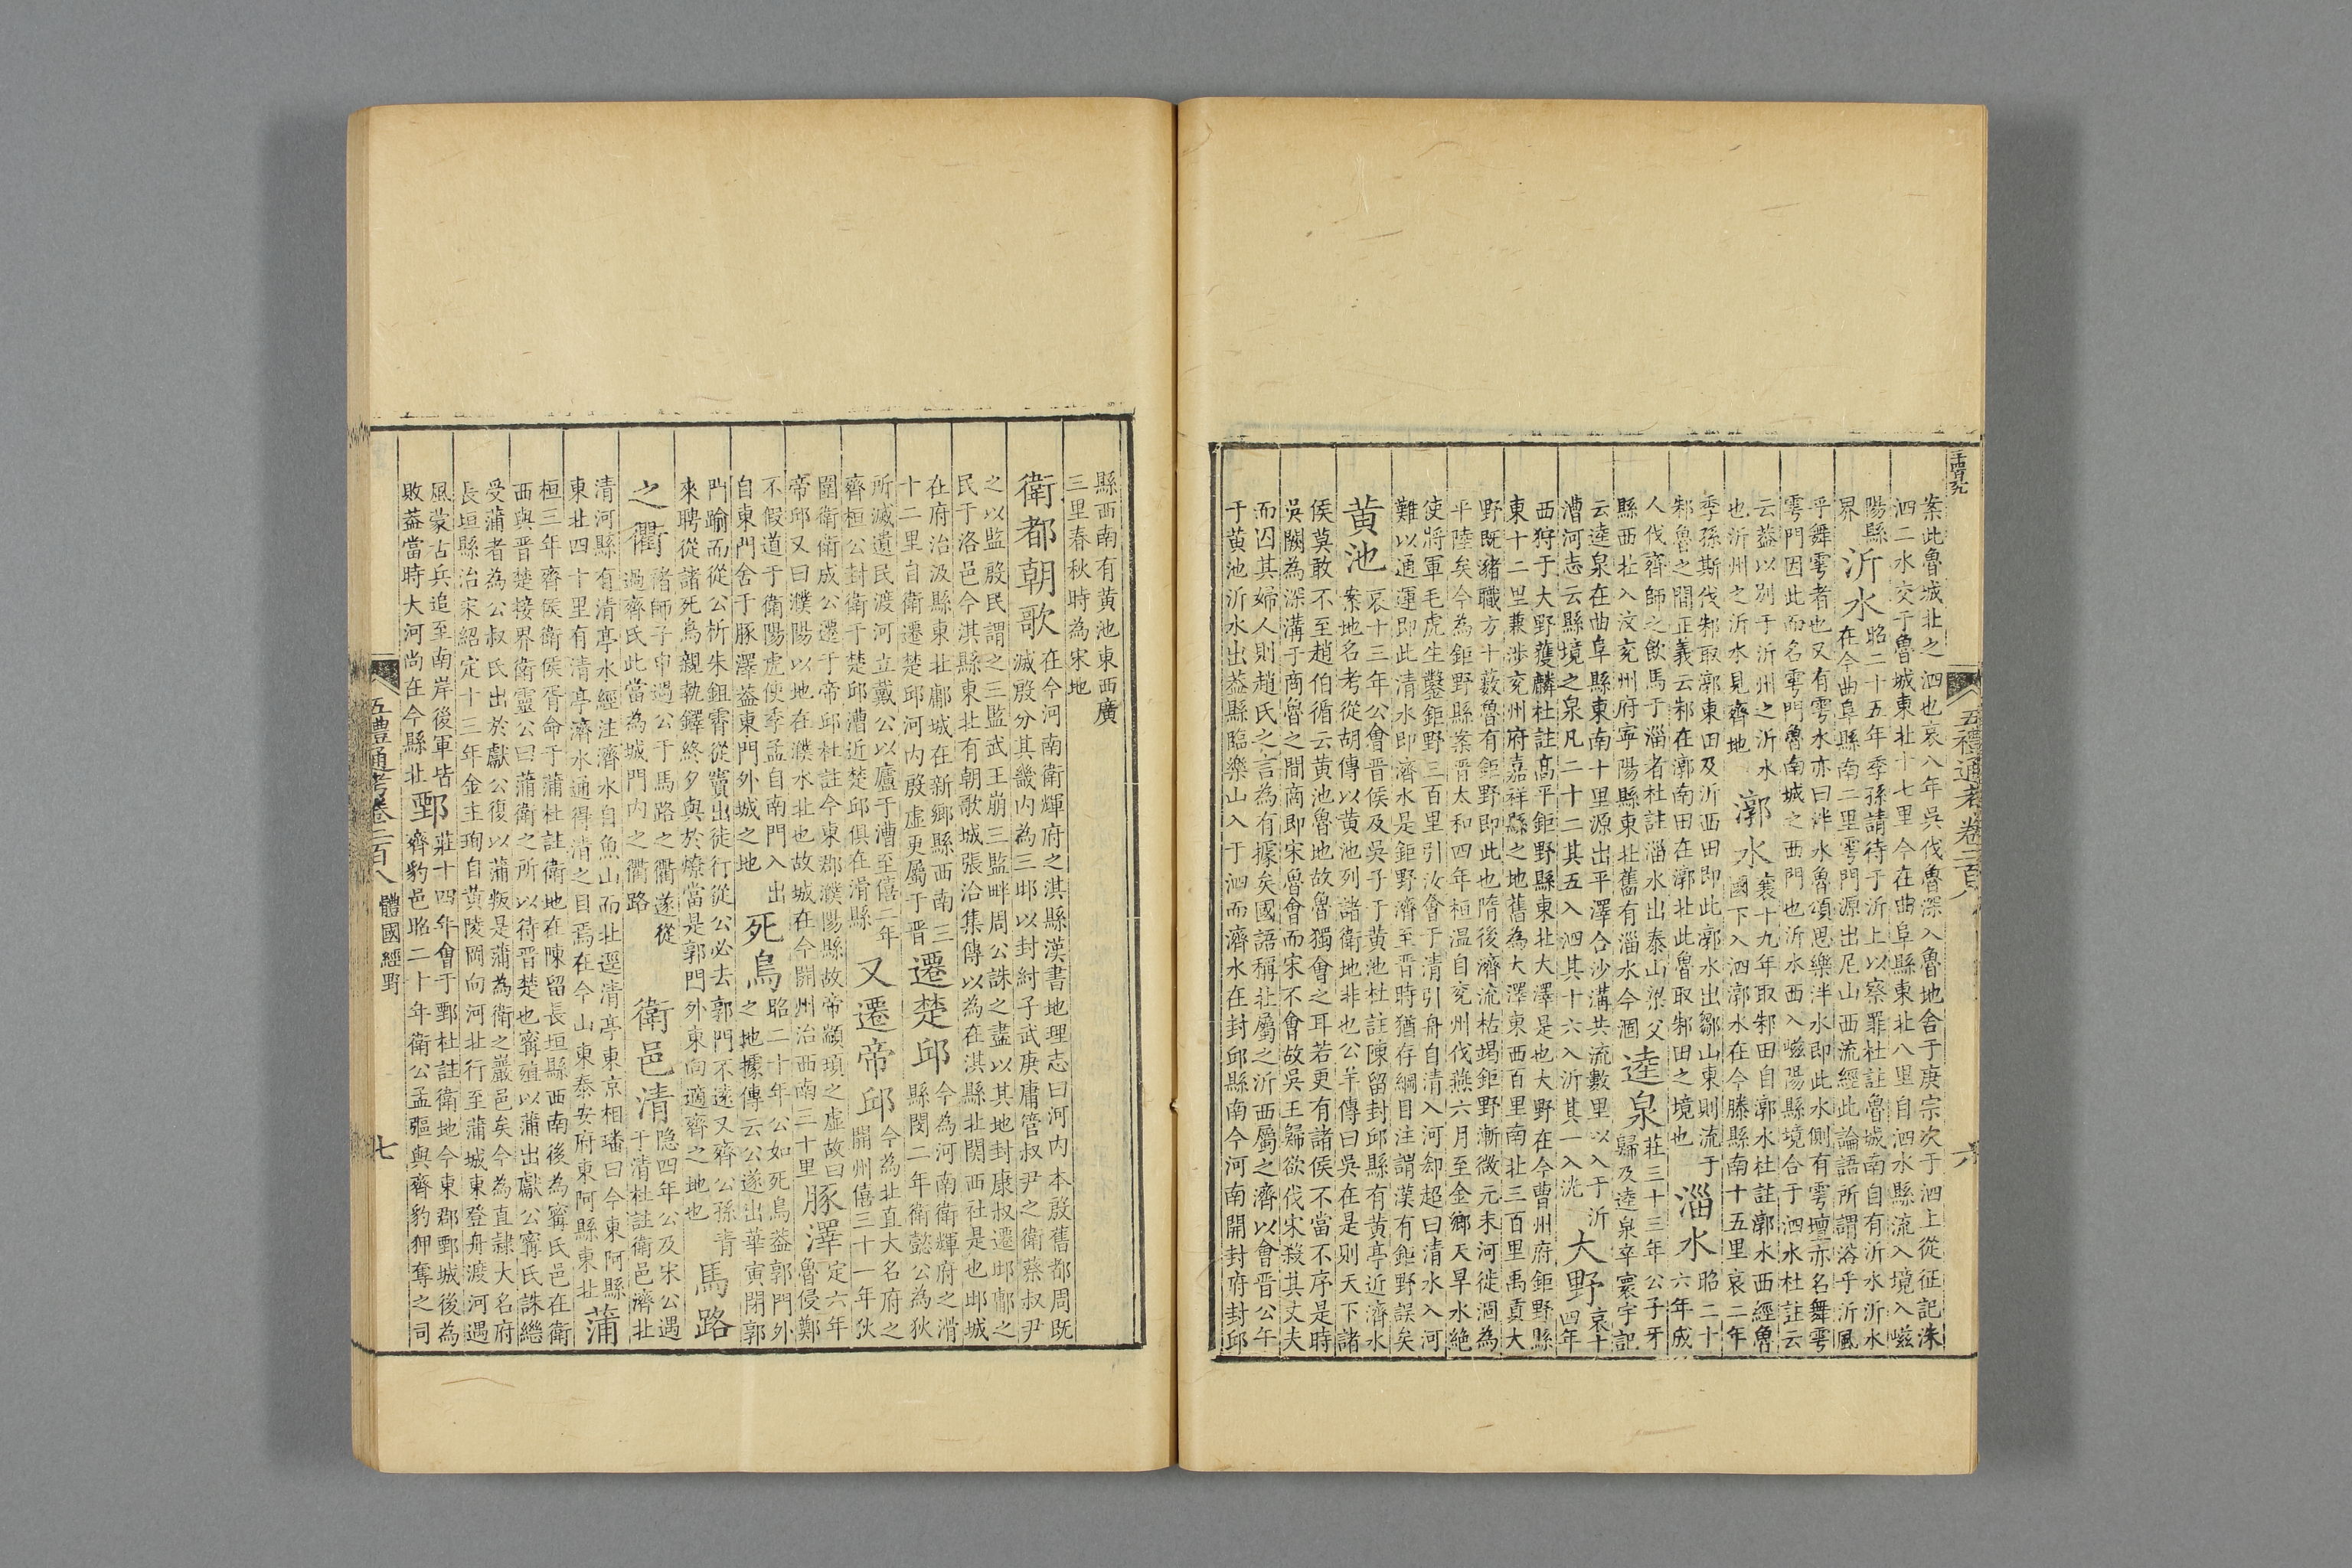 案此魯城北之泗也哀八年吳伐魯深入魯地舍于庚宗次于泗上從征記洙
泗二水交于魯城東北十七里今在曲阜縣東北八里自泗水縣流入境入嵫
陽縣
界
沂水
昭二十五年季孫請待于沂上以察罪杜註魯城南自有沂水沂水
在今曲阜縣南二里雩門源出尼山西流經此論語所謂浴乎沂風
乎舞雩者也又有雩水亦曰泮水魯頌思樂泮水即此水側有雩壇亦名舞雩
雩門因此而名雩門魯南城之西門也沂水西入嵫陽縣境合于泗水杜註云
云蓋以別于沂州之沂水
也沂州之沂水見齊地
漷水
襄十九年取邾田自漷水杜註漷水西經魯
國下入泗漷水在今滕縣南十五里哀二年
季孫斯伐邾取漷東田及沂西田即此漷水出鄒山東則流于
邾魯之間正義云邾在漷南田在漷北此魯取邾田之境也
淄水
昭二十
六年成
人伐齊師之飲馬于淄者杜註淄水出泰山梁父
縣西北入汶兗州府寧陽縣東北舊有淄水今涸
逵泉
莊三十三年公子牙
歸及逵泉卒寰宇記
云逵泉在曲阜縣東南十里源出平澤合沙溝共流數里以入于沂
漕河志云縣境之泉凡二十二其五入泗其十六入沂其一入洸
大野
哀十
四年
西狩于大野獲麟杜註高平鉅野縣東北大澤是也大野在今曹州府鉅野縣
東十二里兼涉兗州府嘉祥縣之地舊為大澤東西百里南北三百里禹貢大
野既豬職方十藪魯有鉅野即此也隋後濟流枯竭鉅野漸微元末河徙涸為
平陸矣今為鉅野縣案晉太和四年桓温自兗州伐燕六月至金鄉天旱水絕
使將軍毛虎生鑿鉅野三百里引汶會于清引舟自清入河却超曰清水入河
難以通運即此清水即濟水是鉅野濟至晉時猶存綱目注謂漢有鉅野誤矣
黃池
哀十三年公會晉侯及吳子于黃池杜註陳留封邱縣有黃亭近濟水
案地名考從胡傳以黃池列諸衛地非也公羊傳曰吳在是則天下諸
侯莫敢不至趙伯循云黃池魯地故魯獨會之耳若更有諸侯不當不序是時
吳闕為深溝于商魯之間商即宋魯會而宋不會故吳王歸欲伐宋殺其丈夫
而囚其婦人則趙氏之言為有據矣國語稱北屬之沂西屬之濟以會晉公午
于黃池沂水出蓋縣臨樂山入于泗而濟水在封邱縣南今河南開封府封邱
五禮通考卷二百八
六
縣西南有黃池東西廣
三里春秋時為宋地
衛都朝歌
在今河南衛輝府之淇縣漢書地理志曰河內本殷舊都周既
滅殷分其畿內為三邶以封紂子武庚庸管叔尹之衛蔡叔尹
之以監殷民謂之三監武王崩三監畔周公誅之盡以其地封康叔遷邶鄘之
民于洛邑今淇縣東北有朝歌城張洽集傳以為在淇縣北関西社是也邶城
在府治汲縣東北鄘城在新鄉縣西南三
十二里自衛遷楚邱河內殷虛更屬于晉
遷楚邱
今為河南衛輝府之滑
縣閔二年衛懿公為狄
所滅遺民渡河立戴公以廬于漕至僖二年
齊桓公封衛于楚邱漕近楚邱俱在滑縣
又遷帝邱
今為北直大名府之
開州僖三十一年狄
圍衛衛成公遷于帝邱杜註今東郡濮陽縣故帝顓頊之虛故曰
帝邱又曰濮陽以地在濮水北也故城在今開州治西南三十里
豚澤
定六年
魯侵鄭
不假道于衛陽虎使季孟自南門入出
自東門舍于豚澤蓋東門外城之地
死鳥
昭二十年公如死鳥蓋郭門外
之地據傳云公遂出華寅閉郭
門踰而從公析朱鉏宵從竇出徒行從公必去郭門不遠又齊公孫青
來聘從諸死鳥親執鐸終夕與於燎當是郭門外東向適齊之地也
馬路
之衢
褚師子申遇公于馬路之衢遂從
過齊氏此當為城門內之衢路
衛邑清
隐四年公及宋公遇
于清杜註衛邑濟北
清河縣有清亭水經注濟水自魚山而北逕清亭東京相璠曰今東阿縣
東北四十里有清亭濟水通得清之目焉在今山東泰安府東阿縣東北
蒲
桓三年齊侯衛侯胥命于蒲杜註衛地在陳留長垣縣西南後為甯氏邑在衛
西與晉楚接界衛靈公曰蒲衛之所以待晉楚也甯殖以蒲出獻公甯氏誅繼
受蒲者為公叔氏出於獻公復以蒲叛是蒲為衛之巖邑矣今為直隸大名府
長垣縣治宋紹定十三年金主珣自黃陵岡向河北行至蒲城東登舟渡河遇
風蒙古兵追至南岸後軍皆
敗蓋當時大河尚在今縣北
鄄
莊十四年會于鄄杜註衛地今東郡鄄城後為
齊豹邑昭二十年衛公孟彄與齊豹狎奪之司
五禮通考卷二百八
體國經野
七